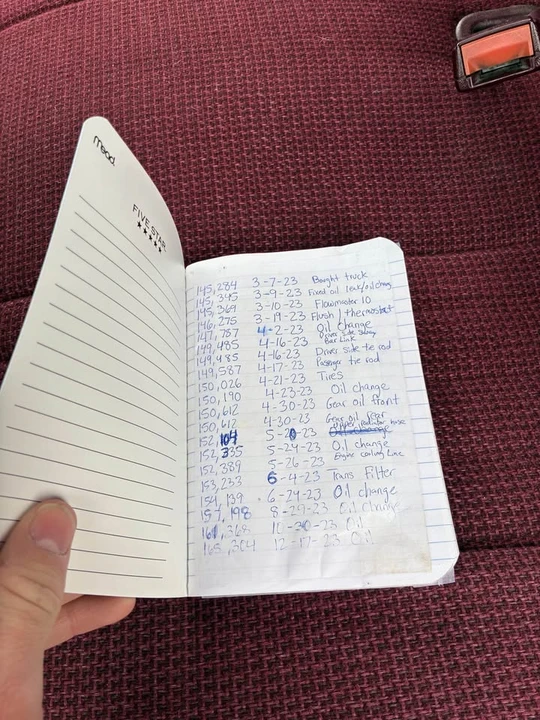 mead
FIVE STAR
★★★★★
145,284 3-7-23 Bought truck
145,345 3-9-23 Fixed oil leak/oil chang
145,369 3-10-23 Flowmaster 10
146,275 3-19-23 Flush / thermostat
147,757 4-2-23 Oil change
149,485 4-16-23 Driver side sway Bar Link
149,485 4-16-23 Driver side tie rod
149,587 4-17-23 Passenger tie rod
150,026 4-21-23 Tires
150,190 4-23-23 Oil change
150,612 4-30-23 Gear oil front
150,612 4-30-23 Gear oil rear
152,104 5-20-23 Upper radiator hose
152,335 5-24-23 Oil change
152,389 5-26-23 Engine cooling Line
153,233 6-4-23 Trans Filter
154,139 6-24-23 Oil change
157,198 8-29-23 Oil change
161,368 10-20-23 Oil
165,304 12-17-23 Oil